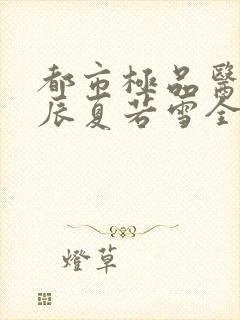 都市極品醫
辰夏若雪全
燈草